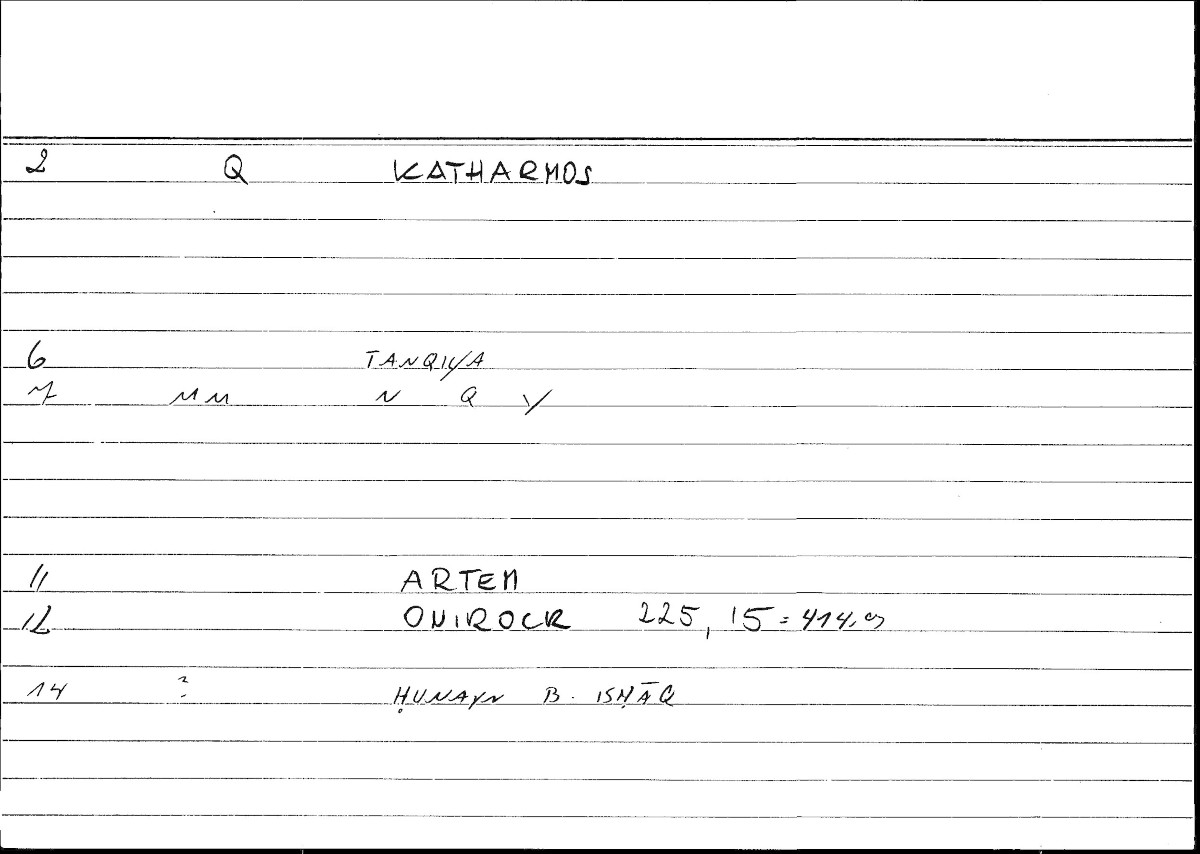 2 Q KATHARMOS
6 TANQIYA
7 MM N Q Y
11 ARTEM
12 ONIROCR 225, 15 = 414,9
14 ? ḤUNAYN B. ISḤĀQ